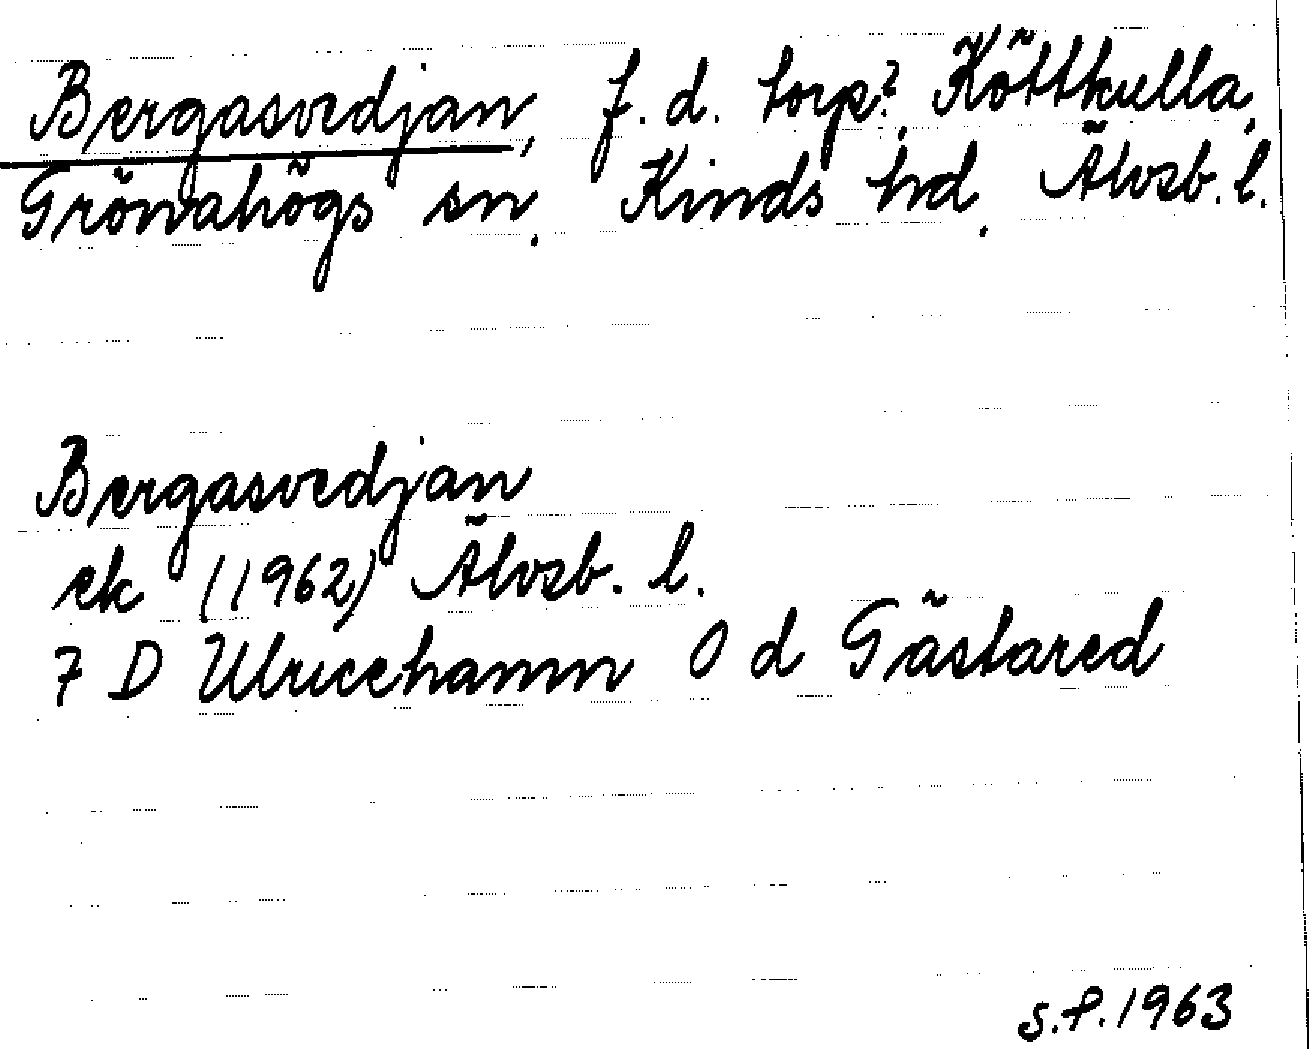 Bergasvedjan, f.d. torp?, Köttkulla,
Grönahögs sn. Kinds hd. Älvsb. l.
Bergasvedjan
ek (1962) Älvsb. l.
7 D Ulricehamn 0 d Gästared
S.F. 1963